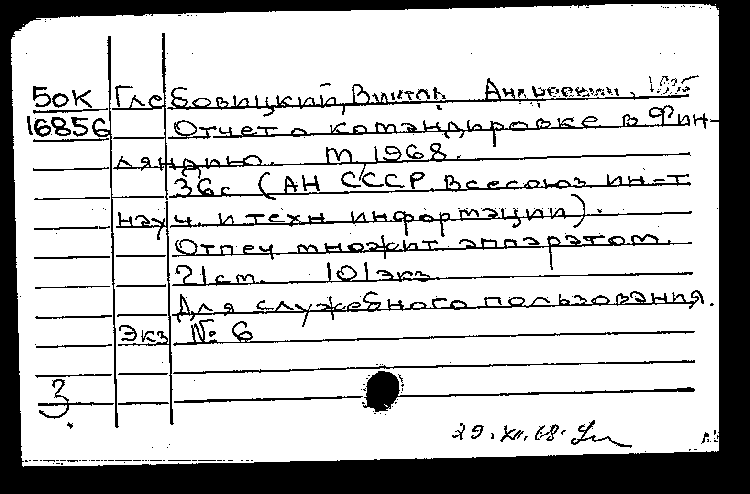 50К Глебовицкий, Виктор Андреевич,
16856 Отчет о командировке в Фин-
ляндию. М, 1968.
36с (АН СССР. Всесоюз ин-т
науч. и техн информации).
Отпеч множит аппаратом.
21см. 101экз
Для служебного пользования.
Экз № 6
3
29.XII.68.